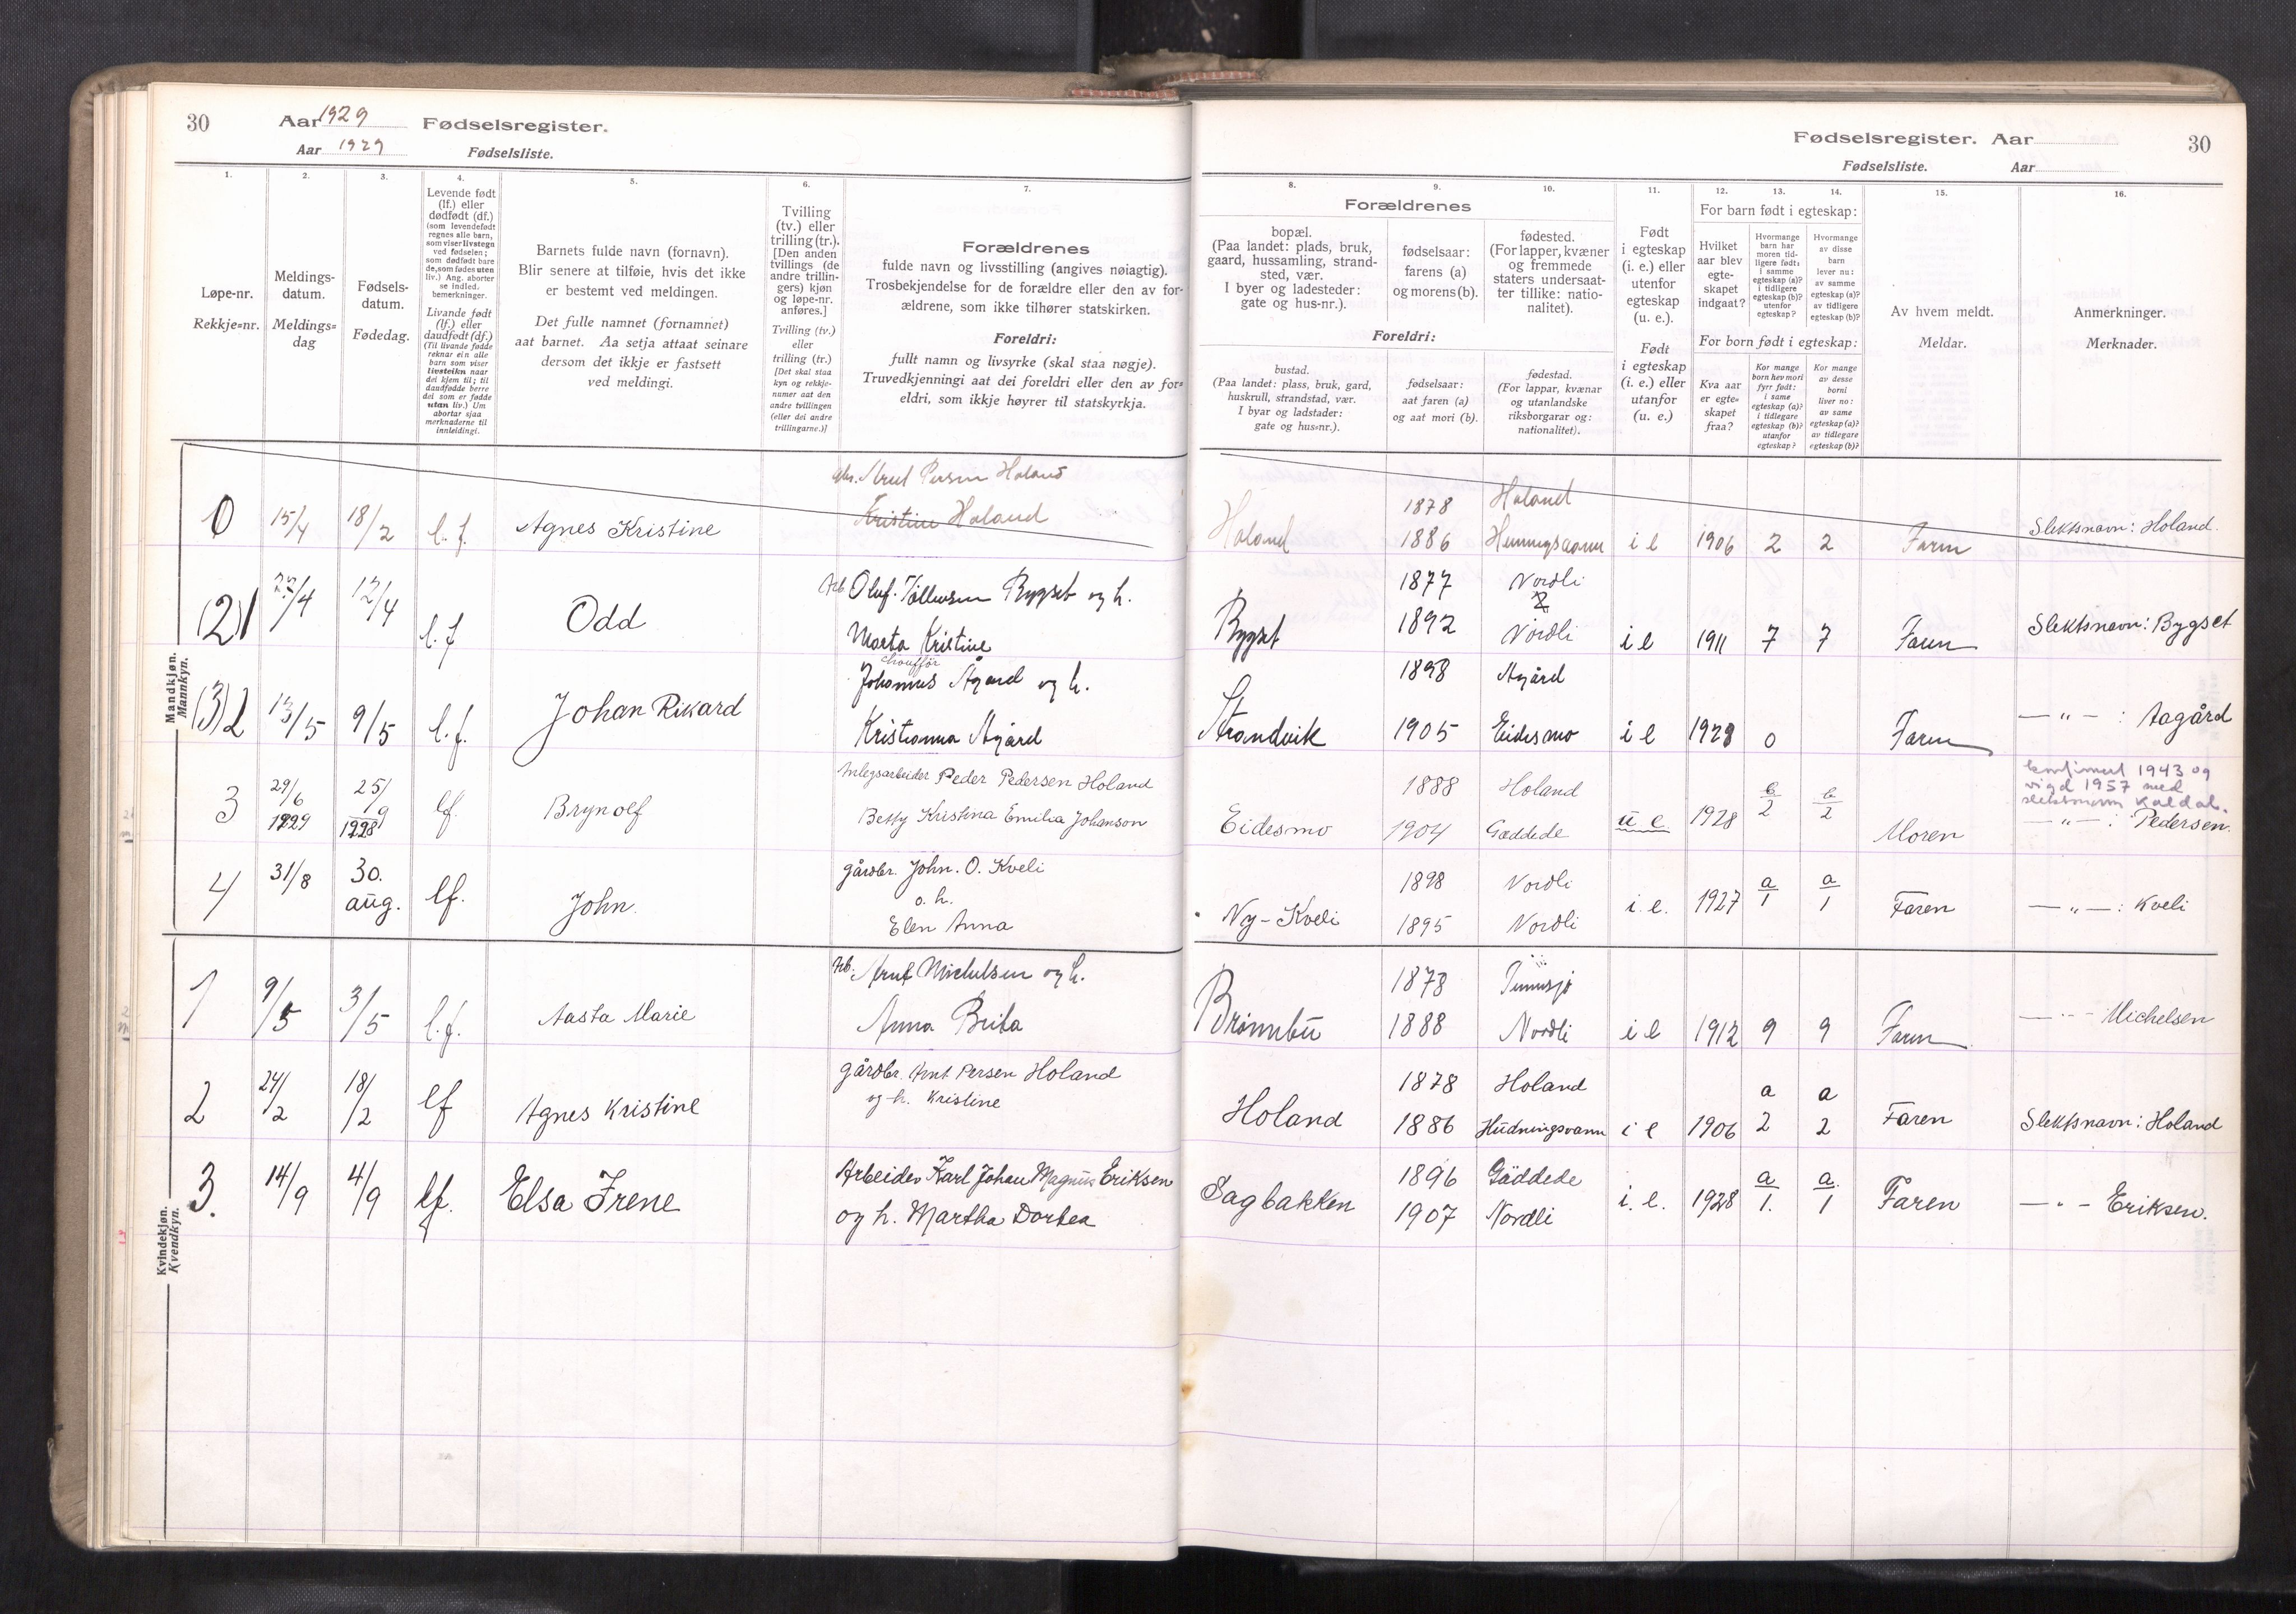 30 Aar 1929 Fødselsregister.
Aar 1929 Fødselsliste.
1. 2. 3. 4. 5. 6. 7.
Løpe-nr.
Rekkje=nr.
Meldings-
datum.
Meldings=
dag
Fødsels-
datum.
Fødedag.
Levende født
(lf.) eller
dødfødt (df.)
(som levendefødt
regnes alle barn,
som viser livstegn
ved fødselen;
som dødfødt bare
de, som fødes uten
liv.) Ang. aborter
se indled.
bemerkninger.
Livande født
(lf.) eller
daudfødt (df.)
(Til livande fødde
reknar ein alle
barn som viser
livsteikn naar
dei kjem til; til
daudfødde berre
dei som er fødde
utan liv.) Um
abortar sjaa
merknaderne til
innleidingi.
Barnets fulde navn (fornavn).
Blir senere at tilføie, hvis det ikke
er bestemt ved meldingen.
Det fulle namnet (fornamnet)
aat barnet. Aa setja attaat seinare
dersom det ikkje er fastsett
ved meldingi.
Tvilling
(tv.) eller
trilling (tr.).
[Den anden
tvillings (de
andre trillin-
gers) kjøn
og løpe-nr.
anføres.]
Tvilling (tv.)
eller
trilling (tr.)
[Det skal staa
kyn og rekkje-
numer aat den
andre tvillingen
(eller dei andre
trillingarne.)]
Forældrenes
fulde navn og livsstilling (angives nøiagtig).
Trosbekjendelse for de forældre eller den av for-
ældrene, som ikke tilhører statskirken.
Foreldri:
fullt namn og livsyrke (skal staa nøgje).
Truvedkjenningi aat dei foreldri eller den av for=
eldri, som ikkje høyrer til statskyrkja.
Fødselsregister. Aar 30
Fødselsliste. Aar
8. 9. 10. 11. 12. 13. 14. 15. 16.
Forældrenes
bopæl.
(Paa landet: plads, bruk,
gaard, hussamling, strand-
sted, vær.
I byer og ladesteder:
gate og hus-nr.).
fødselsaar:
farens (a)
og morens (b).
fødested.
(For lapper, kvæner
og fremmede
staters undersaat-
ter tillike: natio-
nalitet).
Foreldri:
bustad.
(Paa landet: plass, bruk, gard,
huskrull, strandstad, vær.
I byar og ladstader:
gate og hus=nr.).
fødselsaar:
aat faren (a)
og aat mori (b).
fødestad.
(For lappar, kvænar
og utanlandske
riksborgarar og:
nationalitet).
Født
i egteskap
(i. e.) eller
utenfor
egteskap
(u. e.).
Født
i egteskap
(i. e.) eller
utanfor
(u. e.)
For barn født i egteskap:
Hvilket
aar blev
egte-
skapet
indgaat?
Hvormange
barn har
moren tid-
ligere født:
i samme
egteskap (a)?
i tidligere
egteskap (b)?
utenfor
egteskap?
Hvormange
av disse
barn
lever nu:
av samme
egteskap (a)?
av tidligere
egteskap (b)?
For born født i egteskap:
Kva aar
er egte=
skapet
fraa?
Kor mange
born hev mori
fyrr født:
i same
egteskap (a)?
i tidlegare
egteskap (b)?
utanfor
egteskap?
Kor mange
av desse
borni
liver no:
av same
egteskap (a)?
av tidlegare
egteskap (b)?
Av hvem meldt.
Meldar.
Anmerkninger.
Merknader.
Mandkjøn.
Mannkyn.
gbr. Arnt Persen Holand
0 15/4 18/2 l. f. Agnes Kristine Kristine Holand
Holand 1878 Holand
1886 i e 1906 2 2 Faren Slektsnavn: Holand.
(2)1 /4 12/4 l. f Odd Oluf Bygset og h.
Marta Kristine
Bygset 1877 Nordli
1892 Nordli i e 1911 7 7 Faren Slektsnavn: Bygset
(3)2 13/5 9/5 l. f. Johan Rikard chauffør
Johannes Agård og h.
Kristianna Agård
Strandvik 1898 Agård
1905 Eidesmo i e 1928 0 Faren — " — : Aagård
3 29/6 1929 25/9 1928 lf. Brynolf Anlegsarbeider Peder Pedersen Holand
Betty Kristina Emilia Johanson
Eidesmo 1888 Holand
1904 Gæddede u e 1928 b/2 b/2 Moren
konfirmert 1943 og
vigd 1957 med
slektsnavn Kaldal.
— " — : Pedersen.
4 31/8 30. aug. lf. John. gårdbr. John. O. Kveli
o. h.
Elen Anna
Ny-Kveli 1898 Nordli
1895 Nordli i. e. 1927 a/1 a/1 Faren — " — : Kveli
Kvindekjøn.
Kvendkyn.
1 9/5 3/5 l. f. Aasta Marie Arnt Michelsen og h.
Anna Brita
Brønnbu 1878
1888 Nordli i e 1912 9 9 Faren — " — Michelsen
2 24/2 18/2 lf Agnes Kristine gårdbr. Arnt Persen Holand
og h. Kristine
Holand 1878 Holand
1886 Hudningsvann i e 1906 a 2 a 2 Faren Slektsnavn: Holand
3. 14/9 4/9 lf. Elsa Irene Arbeider Karl Johan Magnus Eriksen
og h. Martha Dortea
Sagbakken 1896 Gäddede
1907 Nordli i. e. 1928 a/1. a./1 Faren — " — Eriksen.